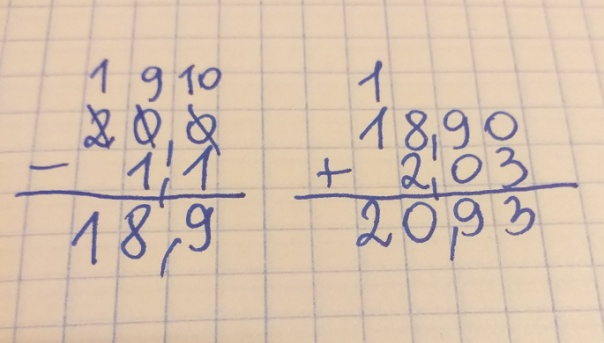 1 9 10
20,0
- 1,1
18,9
1
18,90
+ 2,03
20,93